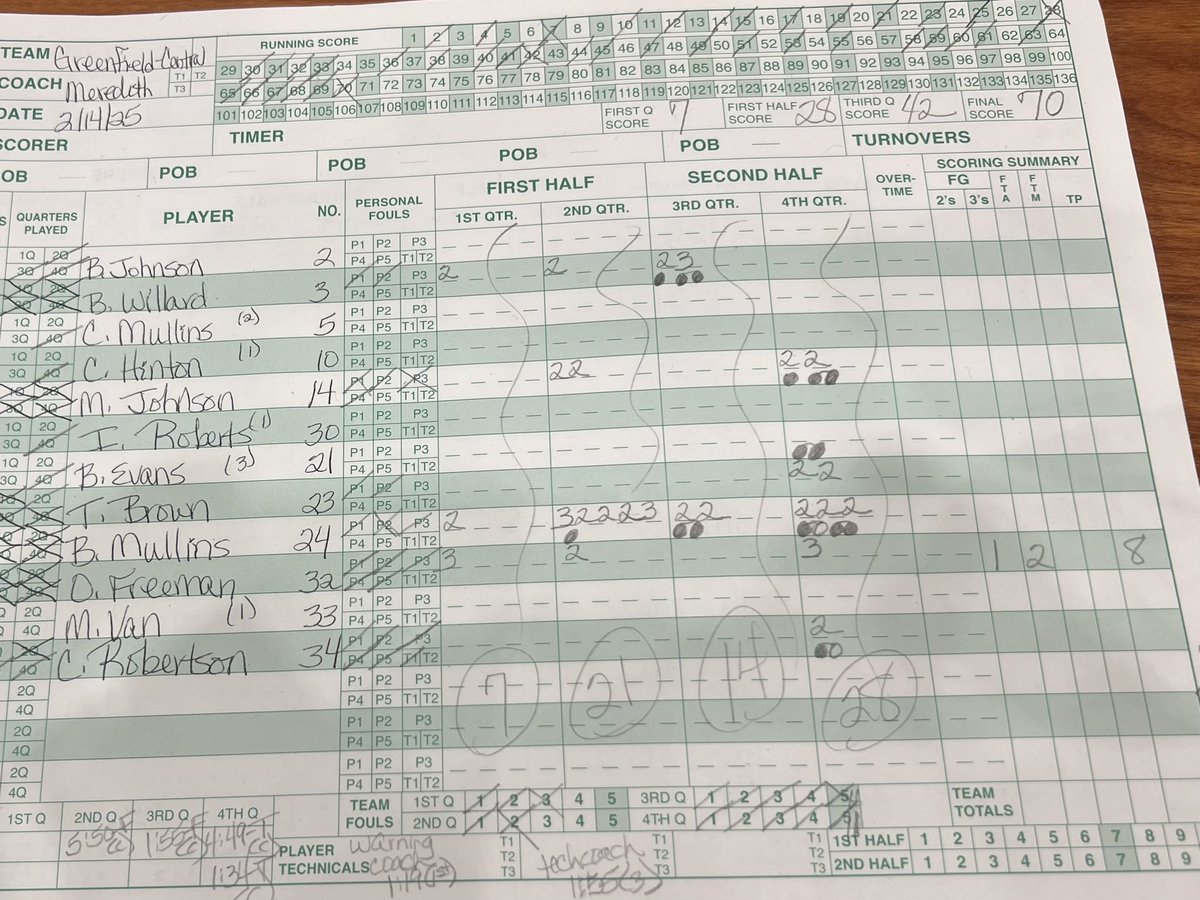 TEAM Greenfield-Central T1 T2 T3
COACH Meredeth
DATE 2/14/25
RUNNING SCORE 1 2 3 4 5 6 7 8 9 10 11 12 13 14 15 16 17 18 19 20 21 22 23 24 25 26 27 28
29 30 31 32 33 34 35 36 37 38 39 40 41 42 43 44 45 46 47 48 49 50 51 52 53 54 55 56 57 58 59 60 61 62 63 64
65 66 67 68 69 70 71 72 73 74 75 76 77 78 79 80 81 82 83 84 85 86 87 88 89 90 91 92 93 94 95 96 97 98 99 100
101 102 103 104 105 106 107 108 109 110 111 112 113 114 115 116 117 118 119 120 121 122 123 124 125 126 127 128 129 130 131 132 133 134 135 136
FIRST Q SCORE 7 FIRST HALF SCORE 28 THIRD Q SCORE 42 FINAL SCORE 70
SCORER TIMER TURNOVERS
OB POB POB POB POB
QUARTERS PLAYED PLAYER NO. PERSONAL FOULS FIRST HALF SECOND HALF OVER-TIME SCORING SUMMARY
1ST QTR. 2ND QTR. 3RD QTR. 4TH QTR. FG 2's 3's FTA FTM TP
1Q 2Q 3Q 4Q B. Johnson 2 P1 P2 P3 P4 P5 T1 T2
1Q 2Q 3Q 4Q B. Willard 3 P1 P2 P3 P4 P5 T1 T2 2 2 23
1Q 2Q 3Q 4Q C. Mullins (2) 5 P1 P2 P3 P4 P5 T1 T2
1Q 2Q 3Q 4Q C. Hinton (1) 10 P1 P2 P3 P4 P5 T1 T2
M. Johnson 14 P1 P2 P3 P4 P5 T1 T2 22 22
1Q 2Q 3Q 4Q I. Roberts (1) 30 P1 P2 P3 P4 P5 T1 T2
1Q 2Q 3Q 4Q B. Evans (3) 21 P1 P2 P3 P4 P5 T1 T2
2Q T. Brown 23 P1 P2 P3 P4 P5 T1 T2 22
2Q 4Q B. Mullins 24 P1 P2 P3 P4 P5 T1 T2 2 32223 22 222
O. Freeman 32 P1 P2 P3 P4 P5 T1 T2 3 2 3 1 2 8
2Q 4Q M. Van (1) 33 P1 P2 P3 P4 P5 T1 T2
4Q C. Robertson 34 P1 P2 P3 P4 P5 T1 T2 2
2Q 4Q P1 P2 P3 P4 P5 T1 T2 7 21 14 28
2Q 4Q P1 P2 P3 P4 P5 T1 T2
2Q 4Q P1 P2 P3 P4 P5 T1 T2
1ST Q 2ND Q 3RD Q 4TH Q
TEAM FOULS 1ST Q 1 2 3 4 5 3RD Q 1 2 3 4 5 TEAM TOTALS
2ND Q 1 2 3 4 5 4TH Q 1 2 3 4 5
PLAYER TECHNICALS warning coach T1 T2 T3 tech coach 1:35(3) T1 T2 T3 T1 T2 T3
1:34
1ST HALF 1 2 3 4 5 6 7 8 9
2ND HALF 1 2 3 4 5 6 7 8 9